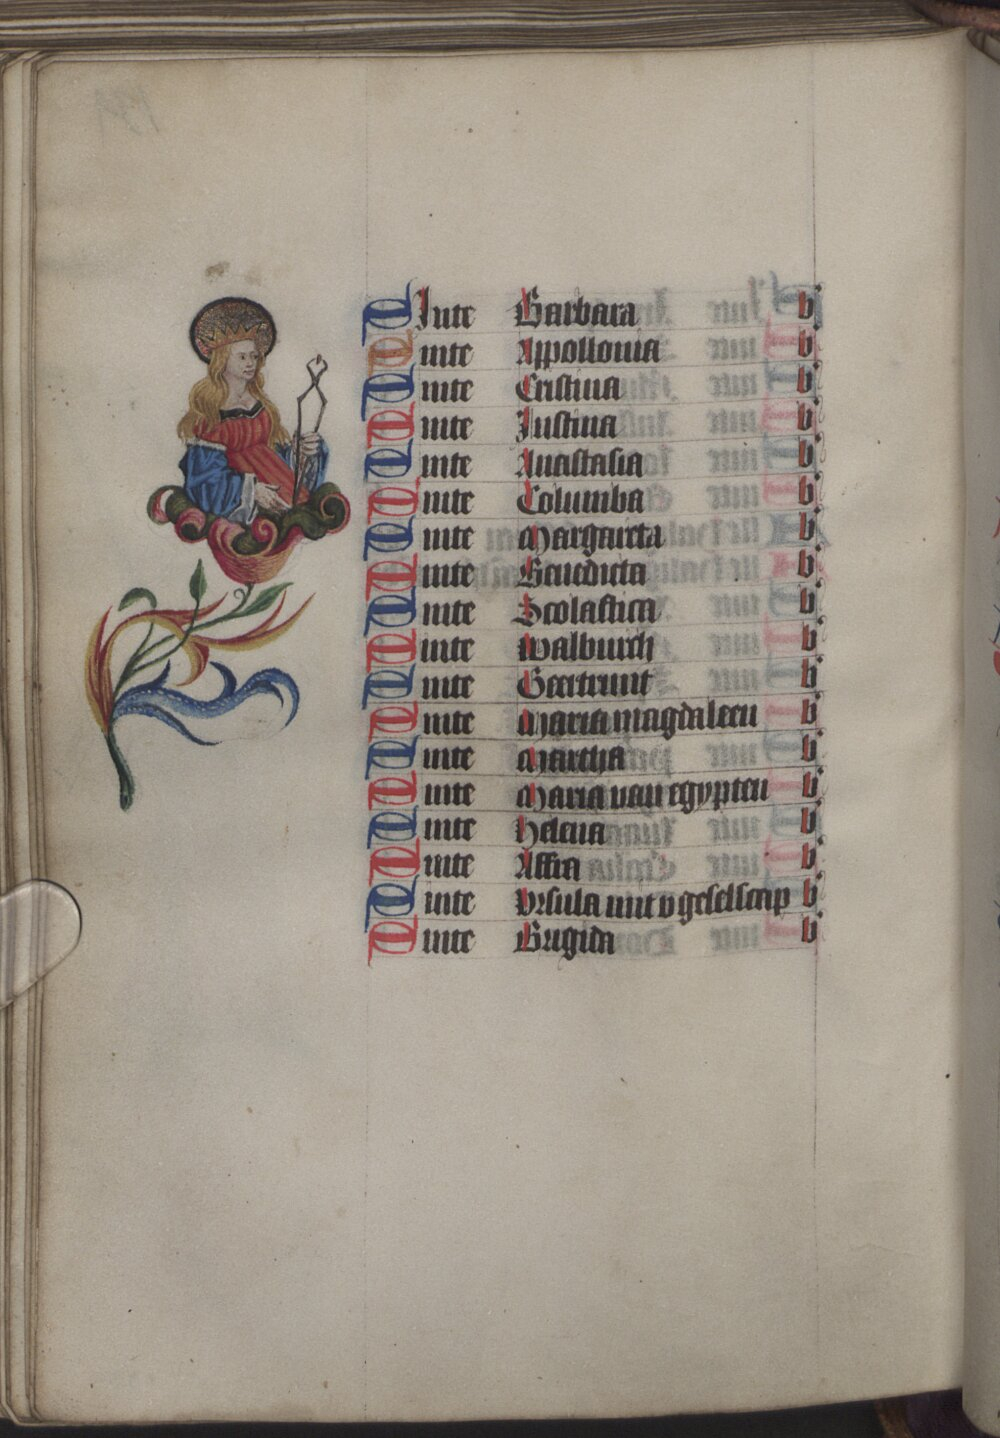 SJnte Barbara b
Sinte Appollonia b
Sinte Cristina b
Sinte Justina b
Sinte Anastasia b
Sinte Columba b
Sinte Margareta b
Sinte Benedicta b
Sinte Scolastica b
Sinte walburch b
Sinte Geertruut b
Sinte Maria magdaleen b
Sinte Martha b
Sinte Maria van egypten b
Sinte Helena b
Sinte Affra b
Sinte Vrsula mit v geselscap b
Sinte Brigida b